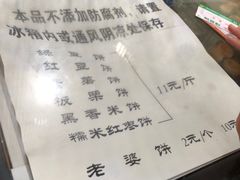 本品不添加防腐剂，请置
冰箱内或通风阴凉处保存
绿豆饼
红豆饼
板栗饼
黑香米饼
糯米红枣饼
11元/斤
老婆饼 2元/个